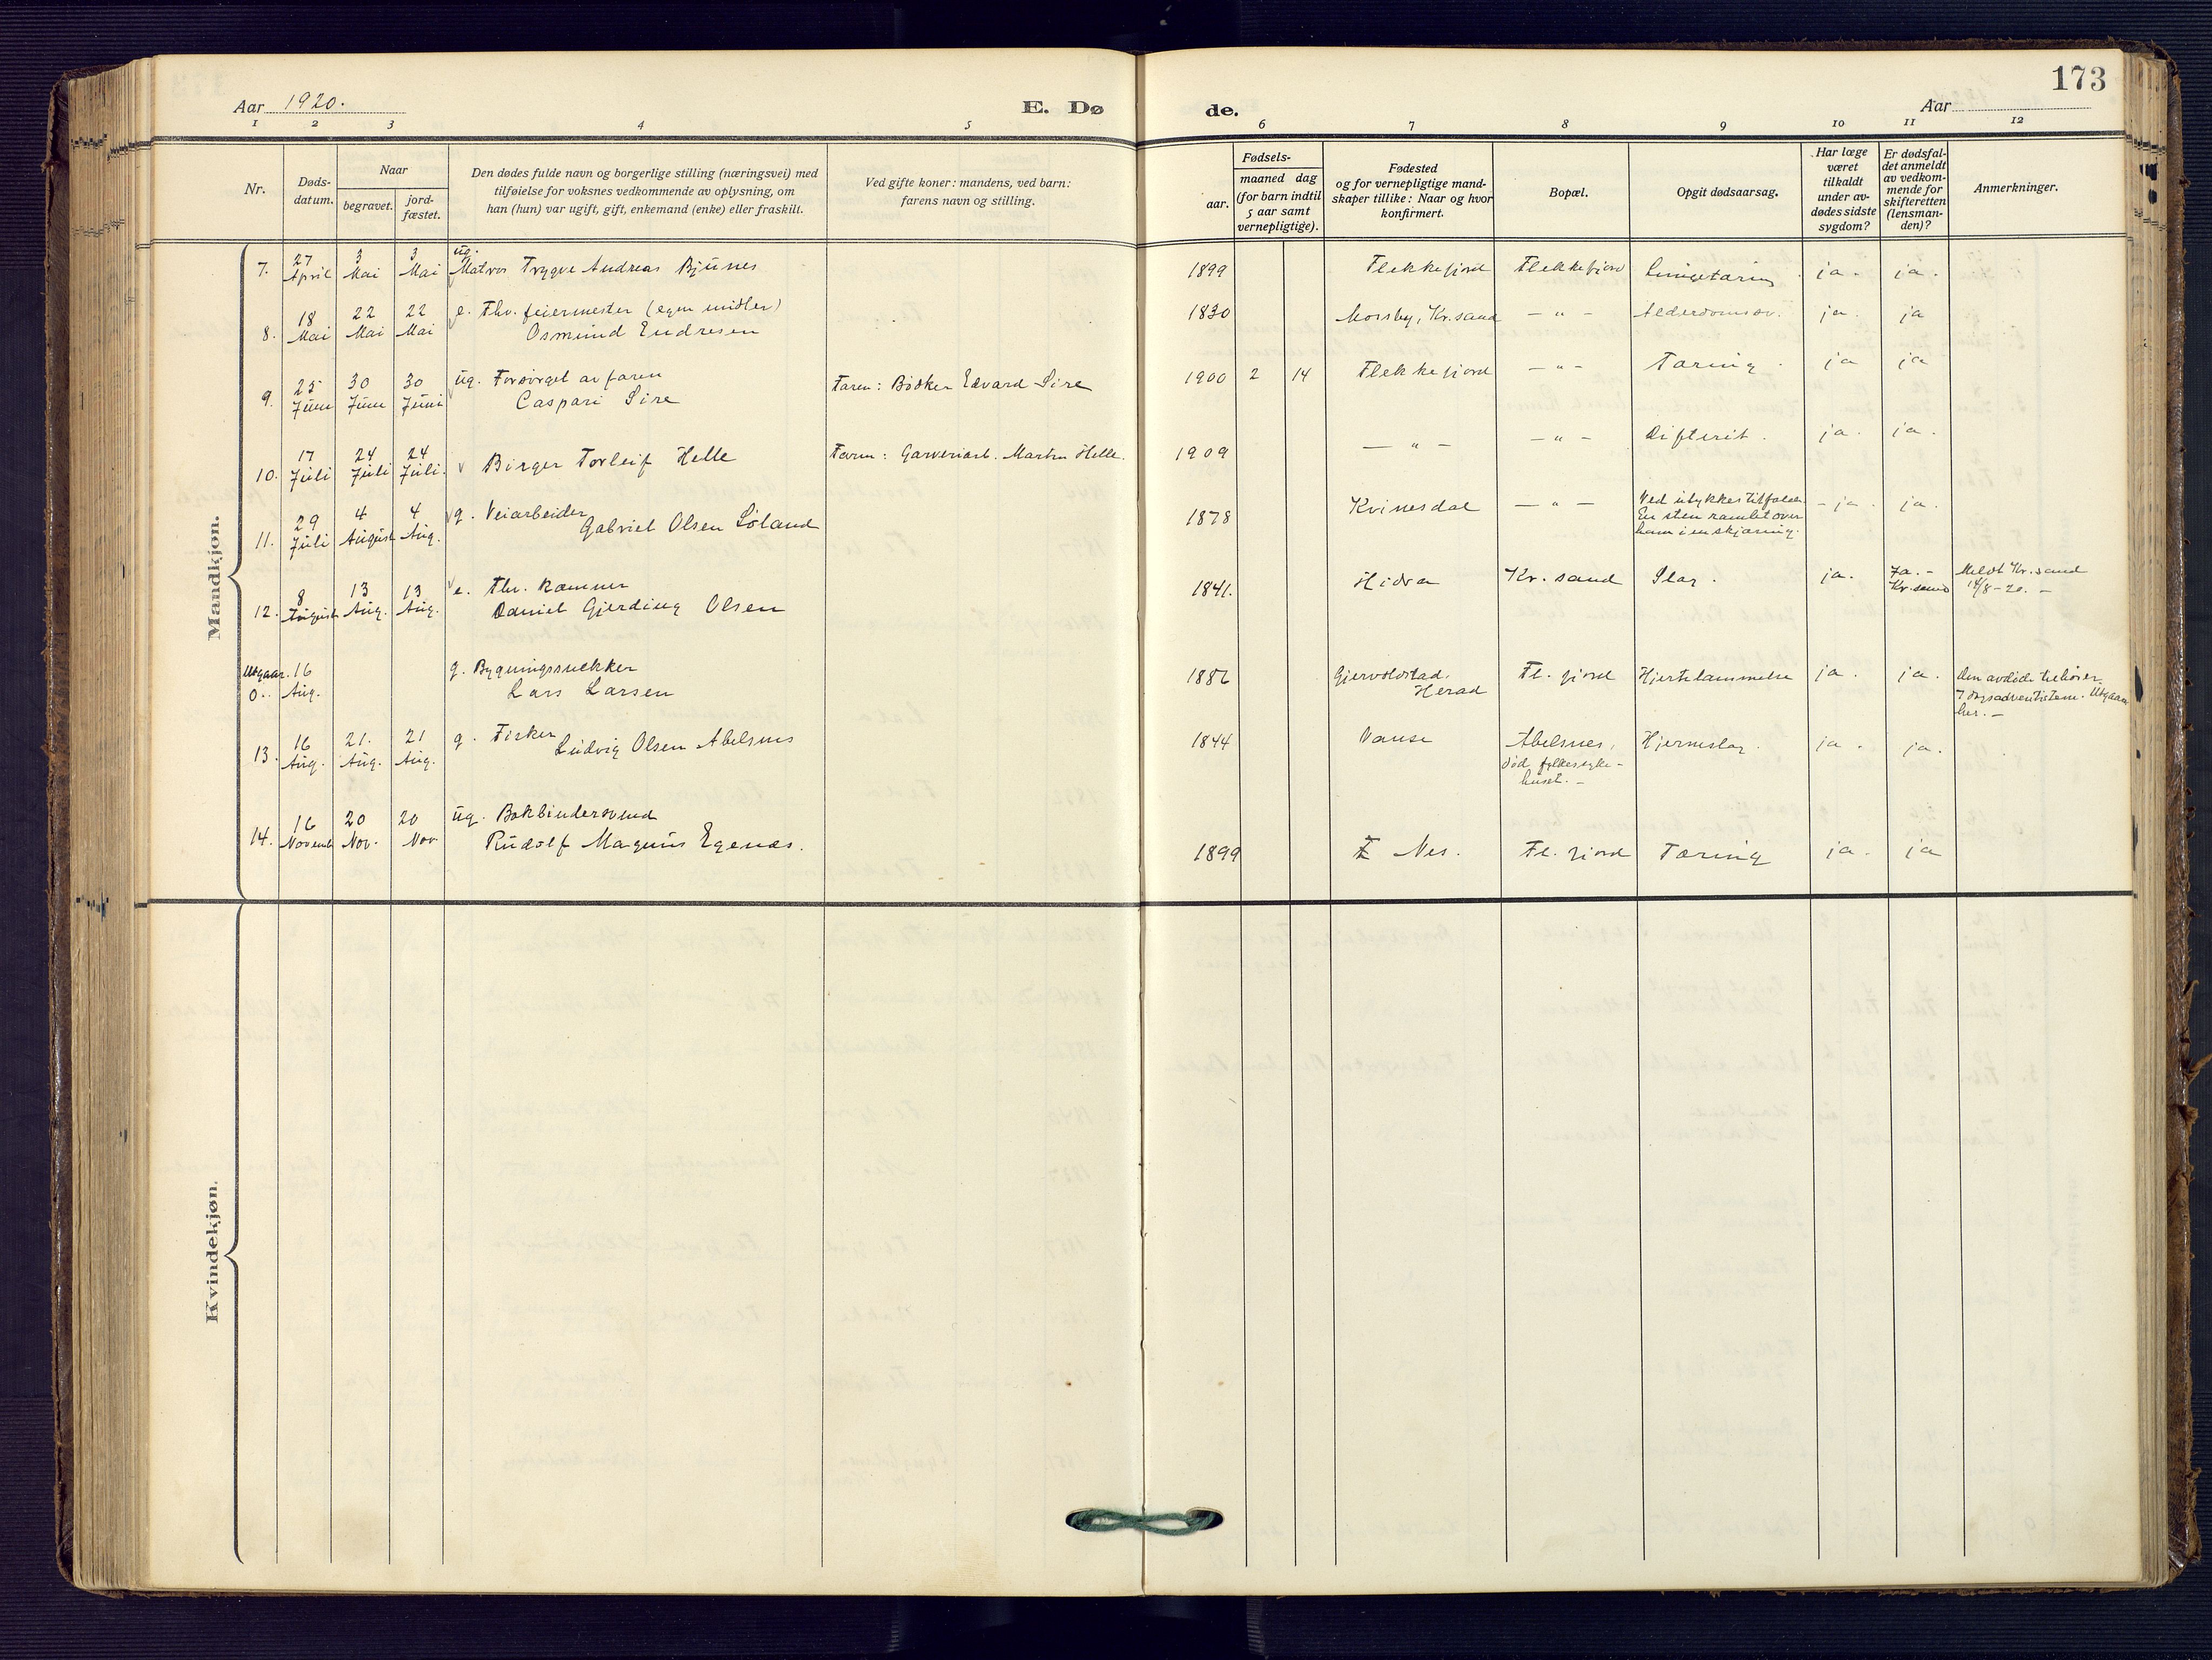 173
Aar 1920.
E. Døde.
Aar
1 2 3 4 5 6 7 8 9 10 11 12
Nr.
Døds-
datum.
Naar
begravet.
jord-
fæstet.
Den dødes fulde navn og borgerlige stilling (næringsvei) med
tilføielse for voksnes vedkommende av oplysning, om
han (hun) var ugift, gift, enkemand (enke) eller fraskilt.
Ved gifte koner: mandens, ved barn:
farens navn og stilling.
Fødsels-
aar.
maaned dag
(for barn indtil
5 aar samt
vernepligtige).
Fødested
og for vernepligtige mand-
skaper tillike: Naar og hvor
konfirmert.
Bopæl.
Opgit dødsaarsag.
Har læge
været
tilkaldt
under av-
dødes sidste
sygdom?
Er dødsfal-
det anmeldt
av vedkom-
mende for
skifteretten
(lensman-
den)?
Anmerkninger.
Mandkjøn.
7. 27 April 3 Mai 3 Mai ug. Matros Trygve Andreas Bjünes 1899 Flekkefjord Flekkefjord Lungetæring ja. ja.
8. 18 Mai 22 Mai 22 Mai e. Fhv. feiermester (egne midler)
Osmund Endresen 1830 Mossby, Kr.sand - " - Alderdomssv. ja. ja
9. 25 Juni 30 Juni 30 Juni ug. Forsørget av faren
Caspari Sire Faren: Bødker Edvard Sire 1900 2 14 Flekkefjord - " - Tæring. ja ja
10. 17 Juli 24 Juli 24 Juli. Birger Torleif Helle Faren: Garveriarb. Martin Helle. 1909 - " - - " - Difterit. ja. ja.
11. 29 Juli 4 August 4 Aug. g. Veiarbeider
Gabriel Olsen Løland 1878 Kvinesdal - " - Ved ulykkestilfælde.
En sten ramlet over
ham i en skjæring. - ja. ja.
12. 8 August 13 Aug. 13 Aug. e. Fhv.
Daniel Gjerding Olsen 1841. Hidra Kr. sand Slag. ja. Ja. -
Kr.sand Meldt Kr.sand
14/8-20. -
Utgaar.
0. 16 Aug. g. Bygningssnekker
Lars Larsen 1886 Gjervoldstad,
Herad Fl. fjord Hjertelammelse ja. ja. Den avdøde tilhører
7 dagsadventistene. Utgaar
her. -
13. 16 Aug. 21. Aug. 21 Aug. g. Fisker
Ludvig Olsen Abelsnes 1844 Vanse Abelsnes,
død fylkessyke-
huset. - Hjerneslag. ja. ja.
14. 16 Novemb 20 Nov. 20 Nov ug. Bokbindersvend
Rudolf Magnus Egenæs. 1899 Nes. Fl. fjord Tæring ja. ja
Kvindekjøn.